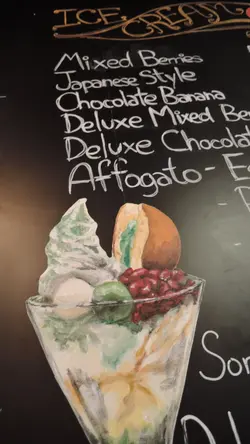 ICE CREAM
Mixed Berries
Japanese Style
Chocolate Banana
Deluxe Mixed Be
Deluxe Chocola
Affogato - E
Sor